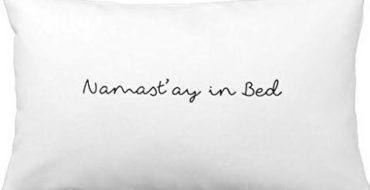 Namast'ay in Bed